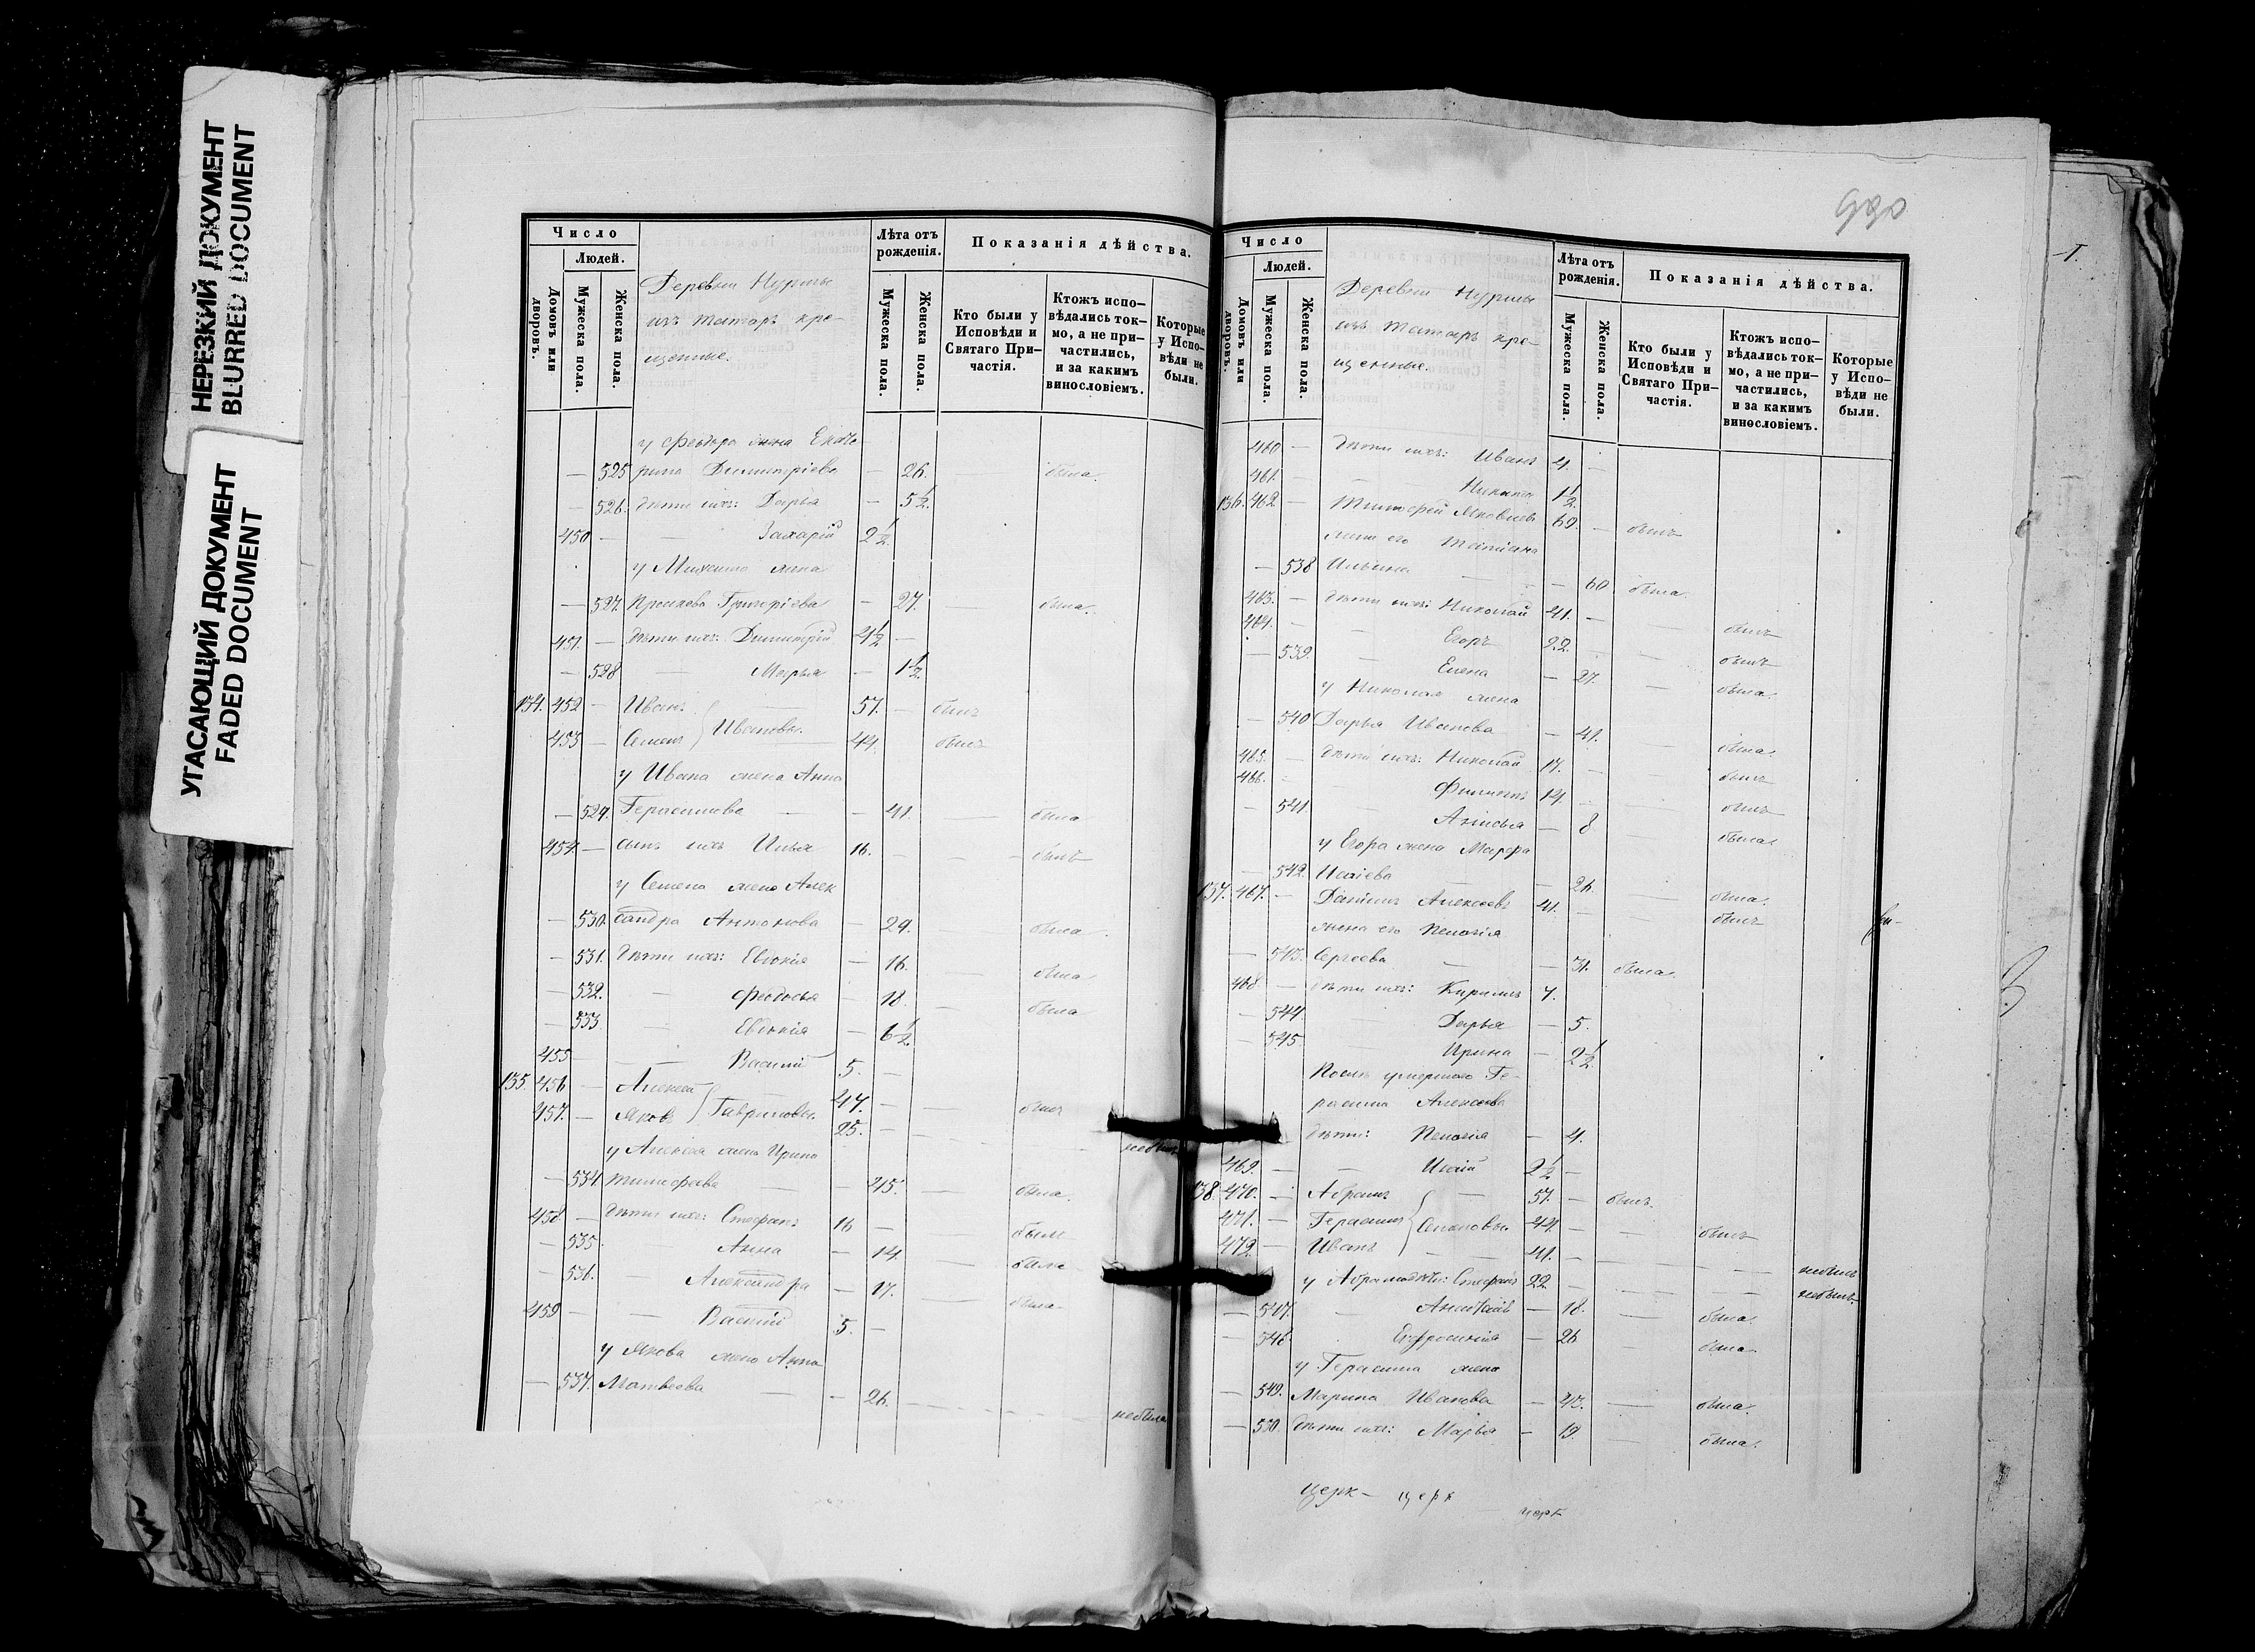 НЕРЕЗКИЙ ДОКУМЕНТ
BLURRED DOCUMENT
УГАСАЮЩИЙ ДОКУМЕНТ
FADED DOCUMENT
Число
Людей.
Домовъ или дворовъ.
Мужеска пола.
Женска пола.
Деревни Нурмы
изъ татаръ кре-
щенные.
Лѣта отъ рожденія.
Мужеска пола.
Женска пола.
Показанія дѣйства.
Кто были у Исповѣди и Святаго При-частія.
Ктожъ испо-вѣдались ток-мо, а не при-частились, и за какимъ винословіемъ.
Которые у Испо-вѣди не были.
у Феодора жена Екате-
— 525 рина Димитріева — 26. была.
— 526. дѣти ихъ: Дарья — 5½
450 — — Захарій 2½
у Михаила жена
— 527. Просковья Григоріева — 27. была.
451. — дѣти ихъ: Димитрій 4½ —
— 528 — Марья — 1½
134. 452 — Иванъ 57. — былъ
453 — Семенъ } Ивановы. 44. былъ
у Ивана жена Анна
— 529. Герасимова — — 41. — была
454. — сынъ ихъ Илья 16. — — былъ
у Семена жена Алек
— 530. сандра Антонова — 29. была.
— 531. дѣти ихъ: Евдокія — 16. — была
— 532. — Феодосья — 18. — была
— 533. — Евдокія — 6½
455 — — Василій 5. —
135. 456 — Алексѣй 47. — — былъ
457. — Яковъ } Гавриловы. 25. — небылъ
у Алексѣя жена Ирина
— 534. Тимофеева — — 45. — была.
458 — дѣти ихъ: Стефанъ 16 — — былъ
— 535 Анна — 14. — была
— 536. — Александра — 17. — была
459 — — Василій 5. —
у Якова жена Анна
— 537. Матвѣева — — 26. небыла
Число
Людей.
Домовъ или дворовъ.
Мужеска пола.
Женска пола.
Деревни Нурмы
изъ татаръ кре-
щенные.
Лѣта отъ рожденія.
Мужеска пола.
Женска пола.
Показанія дѣйства.
Кто были у Исповѣди и Святаго При-частія.
Ктожъ испо-вѣдались ток-мо, а не при-частились, и за какимъ винословіемъ.
Которые у Испо-вѣди не были.
460 — дѣти ихъ: Иванъ 4. —
461. — Никита 1½
136. 462 — Тимофей Яковлевъ 69 — былъ
жена его Татіана
— 538 Ильина — — 60 была.
463. — дѣти ихъ: Николай 41. — былъ
464. — — Егоръ 22. — былъ
— 539. — Елена — 27. — была.
у Николая жена
— 540 Дарья Иванова — 41. была.
465. — дѣти ихъ: Николай 17. — былъ
466. — Филиппъ 14. былъ
— 541. Анисья — 8 — была.
у Егора жена Марфа
— 542. Исаіева — — 26. — была.
137. 467. — Даніилъ Алексѣевъ 41. — былъ
жена его Пелагія
— 543. Сергѣева — — 31. была.
468 — дѣти ихъ: Кириллъ 7.
— 544. Дарья — 5.
— 545 Ирина — 2½
Послѣ умершаго Ге-
расима Алексѣева
дѣти: Пелагія — 4.
469. — — Исаій 2½ —
138. 470. — Абрамъ — 57. — былъ
471. — Герасимъ } Семеновы. 44. — былъ
472. — Иванъ — 41. — небылъ
у Абрама дѣти: Стефанъ 22. — небылъ.
— 547. — Анастасія — 18. — была.
— 548. Ефросинія — 26 — была.
у Герасима жена
— 549. Марина Иванова — 43. — была.
— 550. дѣти ихъ: Марья — 19. — была.
церк- церк